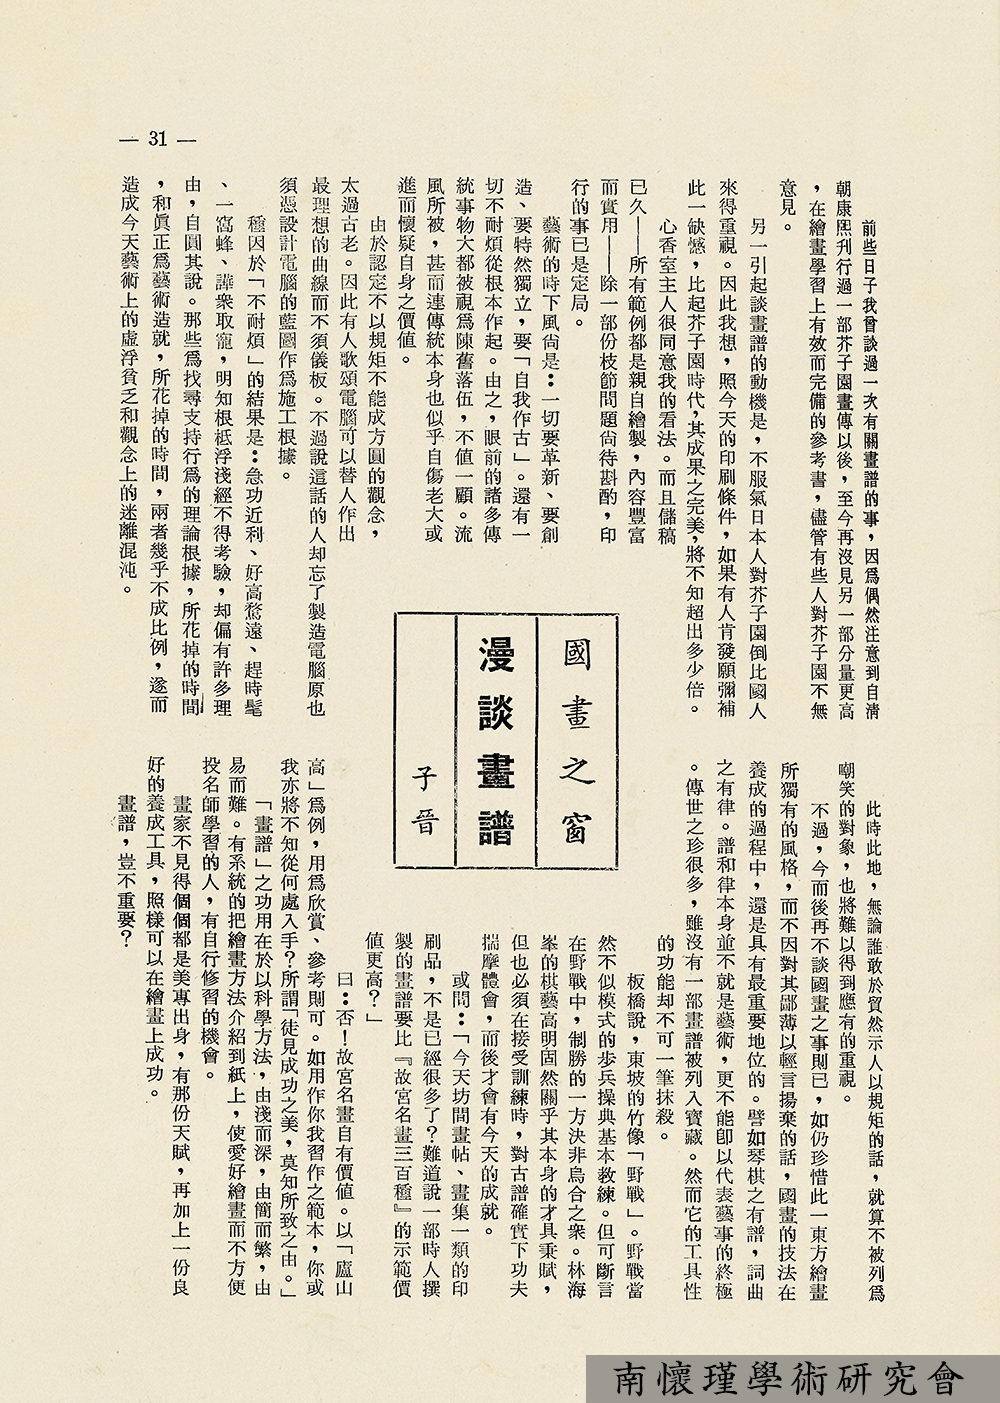 — 31 —
國畫之窗
漫談畫譜
子晉
前些日子我曾談過一次有關畫譜的事，因爲偶然注意到自清
朝康熙刋行過一部芥子園畫傳以後，至今再沒見另一部分量更高
，在繪畫學習上有效而完備的參考書，儘管有些人對芥子園不無
意見。
另一引起談畫譜的動機是，不服氣日本人對芥子園倒比國人
來得重視。因此我想，照今天的印刷條件，如果有人肯發願彌補
此一缺憾，比起芥子園時代，其成果之完美，將不知超出多少倍。
心香室主人很同意我的看法。而且儲稿
已久——所有範例都是親自繪製，內容豐富
而實用——除一部份枝節問題尚待斟酌，印
行的事已是定局。
藝術的時下風尚是：一切要革新、要創
造、要特然獨立，要「自我作古」。還有一
切不耐煩從根本作起。由之，眼前的諸多傳
統事物大都被視爲陳舊落伍，不值一顧。流
風所被，甚而連傳統本身也似乎自傷老大或
進而懷疑自身之價值。
由於認定不以規矩不能成方圓的觀念，
太過古老。因此有人歌頌電腦可以替人作出
最理想的曲線而不須儀板。不過說這話的人却忘了製造電腦原也
須憑設計電腦的藍圖作爲施工根據。
種因於「不耐煩」的結果是：急功近利、好高騖遠、趕時髦
、一窩蜂、譁衆取寵，明知根柢浮淺經不得考驗，却偏有許多理
由，自圓其說。那些爲找尋支持行爲的理論根據，所花掉的時間
，和眞正爲藝術造就，所花掉的時間，兩者幾乎不成比例，遂而
造成今天藝術上的虛浮貧乏和觀念上的迷離混沌。
此時此地，無論誰敢於貿然示人以規矩的話，就算不被列爲
嘲笑的對象，也將難以得到應有的重視。
不過，今而後再不談國畫之事則已，如仍珍惜此一東方繪畫
所獨有的風格，而不因對其鄙薄以輕言揚棄的話，國畫的技法在
養成的過程中，還是具有最重要地位的。譬如琴棋之有譜，詞曲
之有律。譜和律本身並不就是藝術，更不能卽以代表藝事的終極
。傳世之珍很多，雖沒有一部畫譜被列入寶藏。然而它的工具性
的功能却不可一筆抹殺。
板橋說，東坡的竹像「野戰」。野戰當
然不似模式的步兵操典基本教練。但可斷言
在野戰中，制勝的一方決非烏合之衆。林海
峯的棋藝高明固然關乎其本身的才具秉賦，
但也必須在接受訓練時，對古譜確實下功夫
揣摩體會，而後才會有今天的成就。
或問：「今天坊間畫帖、畫集一類的印
刷品，不是已經很多了？難道說一部時人撰
製的畫譜要比『故宮名畫三百種』的示範價
値更高？」
曰：否！故宮名畫自有價値。以「廬山
高」爲例，用爲欣賞、參考則可。如用作你我習作之範本，你或
我亦將不知從何處入手？所謂「徒見成功之美，莫知所致之由。」
「畫譜」之功用在於以科學方法，由淺而深，由簡而繁，由
易而難。有系統的把繪畫方法介紹到紙上，使愛好繪畫而不方便
投名師學習的人，有自行修習的機會。
畫家不見得個個都是美專出身，有那份天賦，再加上一份良
好的養成工具，照樣可以在繪畫上成功。
畫譜，豈不重要？
南懷瑾學術研究會